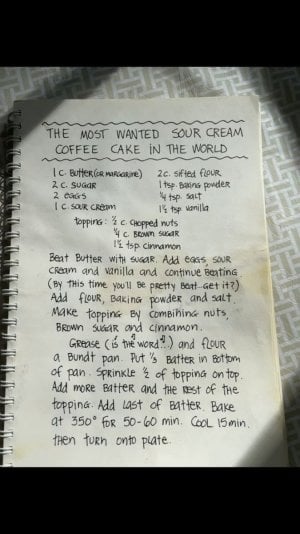 THE MOST WANTED SOUR CREAM
COFFEE CAKE IN THE WORLD
1 c. Butter (or margarine) 2 c. sifted flour
2 c. sugar 1 tsp. Baking powder
2 eggs ¼ tsp. salt
1 c. sour cream 1½ tsp vanilla
topping: ½ c. chopped nuts
¼ c. Brown sugar
1½ tsp. cinnamon
Beat Butter with sugar. Add eggs, sour
cream and vanilla and continue Beating.
(By this time you'll be pretty Beat-get it?)
Add flour, Baking powder and salt.
Make topping By combining nuts,
Brown sugar and cinnamon.
Grease (is the word!!) and flour
a Bundt pan. Put ⅓ Batter in Bottom
of pan. Sprinkle ½ of topping on top.
Add more Batter and the rest of the
topping. Add last of Batter. Bake
at 350° for 50-60 min. Cool 15 min.
then turn onto plate.